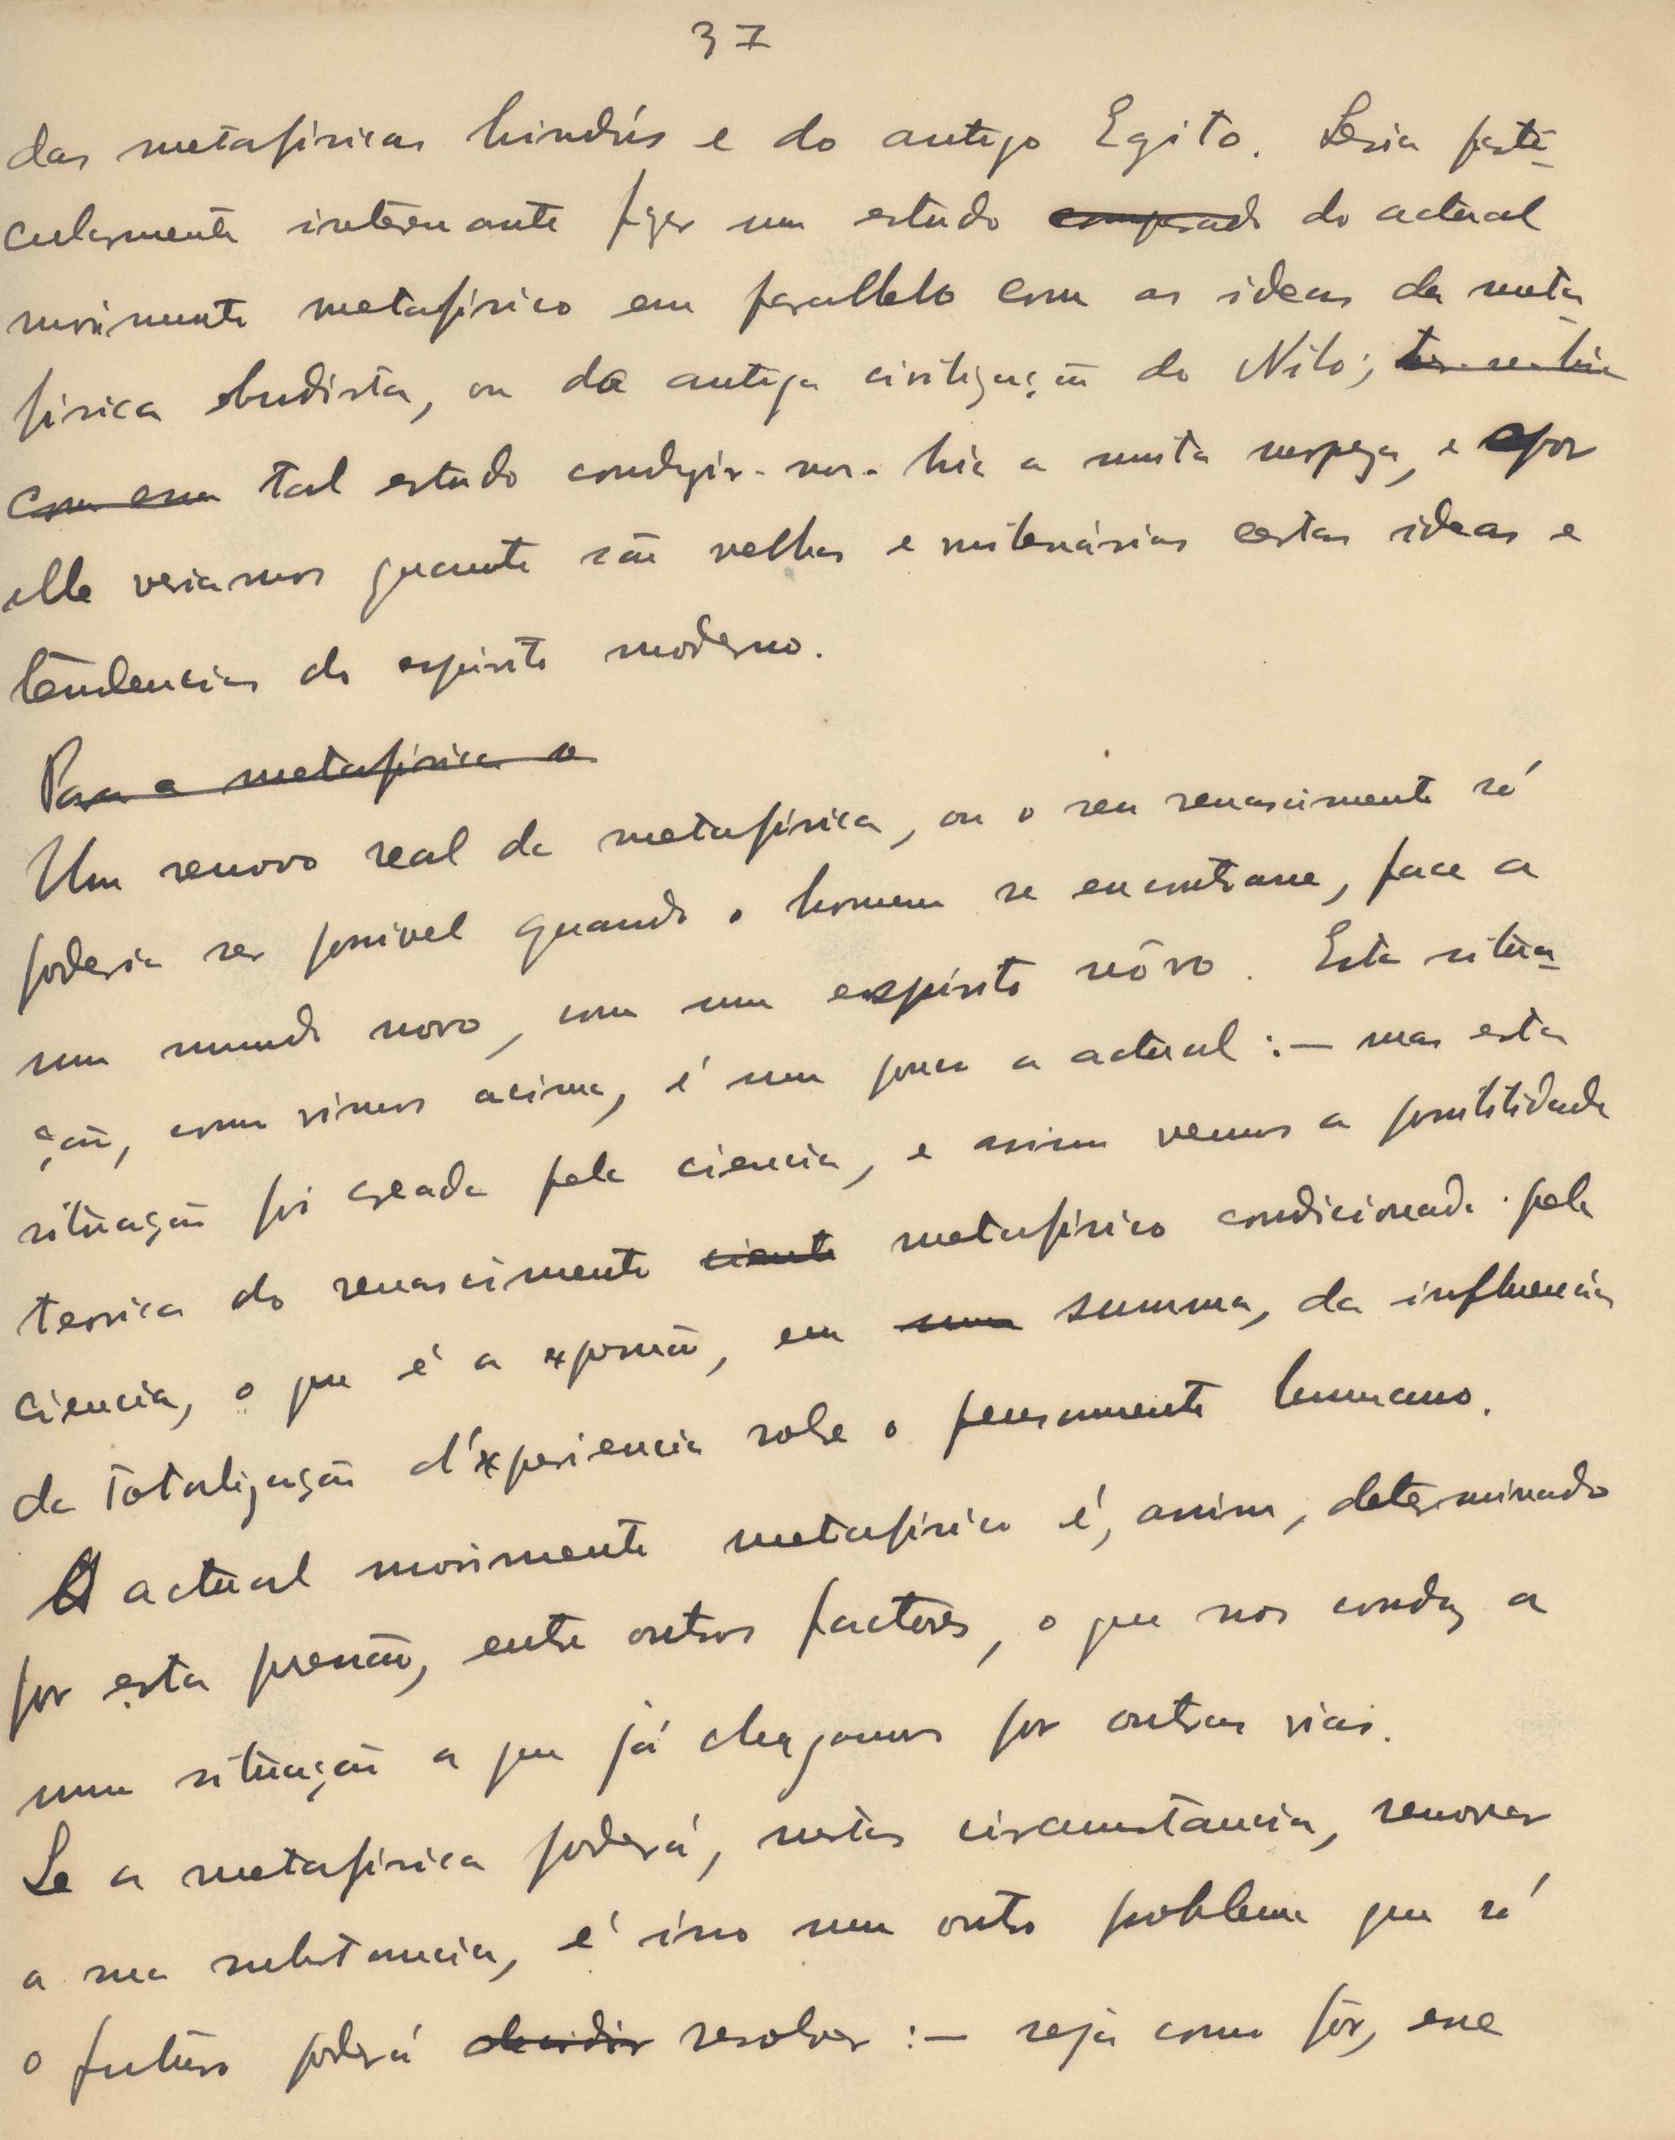 37
das metafísicas hindús e do antigo Egito. Seria parti-
cularmente interessante fazer um estudo comparado do actual
movimento metafísico em parallelo com as ideas da meta-
física budista, ou da antiga civilização do Nilo;
com essa tal estudo conduzir-nos-hia a muita surpreza, e por
elle veriamos quanto são velhas e milenárias certas ideas e
tendencias do espirito moderno.
Para a metafísica o
Um renovo real da metafísica, ou o seu renascimento só
poderia ser possivel quando o homem se encontrasse, face a
um mundo novo, com um espírito nôvo. Esta situa-
ção, como vimos acima, é um pouco a actual :— mas esta
situação foi creada pela ciencia, e assim vemos a possibilidade
teorica do renascimento cienti metafísico condicionado pela
ciencia, o que é a expressão, em uma summa, da influencia
da totalização d'experiencia sobre o pensamento humano.
O actual movimento metafísico é, assim, determinado
por esta pressão, entre outros factores, o que nos conduz a
uma situação a que já chegamos por outras vias.
Se a metafísica poderá, nestas circumstancia, renovar
a sua substancia, é isso um outro problema que só
o futuro poderá decidir resolver :— seja como fôr, esse